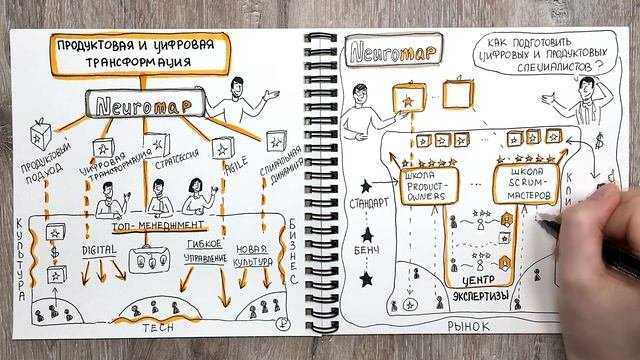 ПРОДУКТОВАЯ И ЦИФРОВАЯ
ТРАНСФОРМАЦИЯ
Neuromap
ПРОДУКТОВЫЙ
ПОДХОД
ЦИФРОВАЯ
ТРАНСФОРМАЦИЯ
СТРАТСЕССИЯ
AGILE
СПИРАЛЬНАЯ
ДИНАМИКА
КУЛЬТУРА
ТОП-МЕНЕДЖМЕНТ
БИЗНЕС
$
DIGITAL
ГИБКОЕ
УПРАВЛЕНИЕ
НОВАЯ
КУЛЬТУРА
TECH
₽
Neuromap
КАК ПОДГОТОВИТЬ
ЦИФРОВЫХ И ПРОДУКТОВЫХ
СПЕЦИАЛИСТОВ?
$
ШКОЛА
PRODUCT-
OWNERS
...
ШКОЛА
SCRUM-
МАСТЕРОВ
СТАНДАРТ
БЕНЧ
...
ЦЕНТР
ЭКСПЕРТИЗЫ
РЫНОК